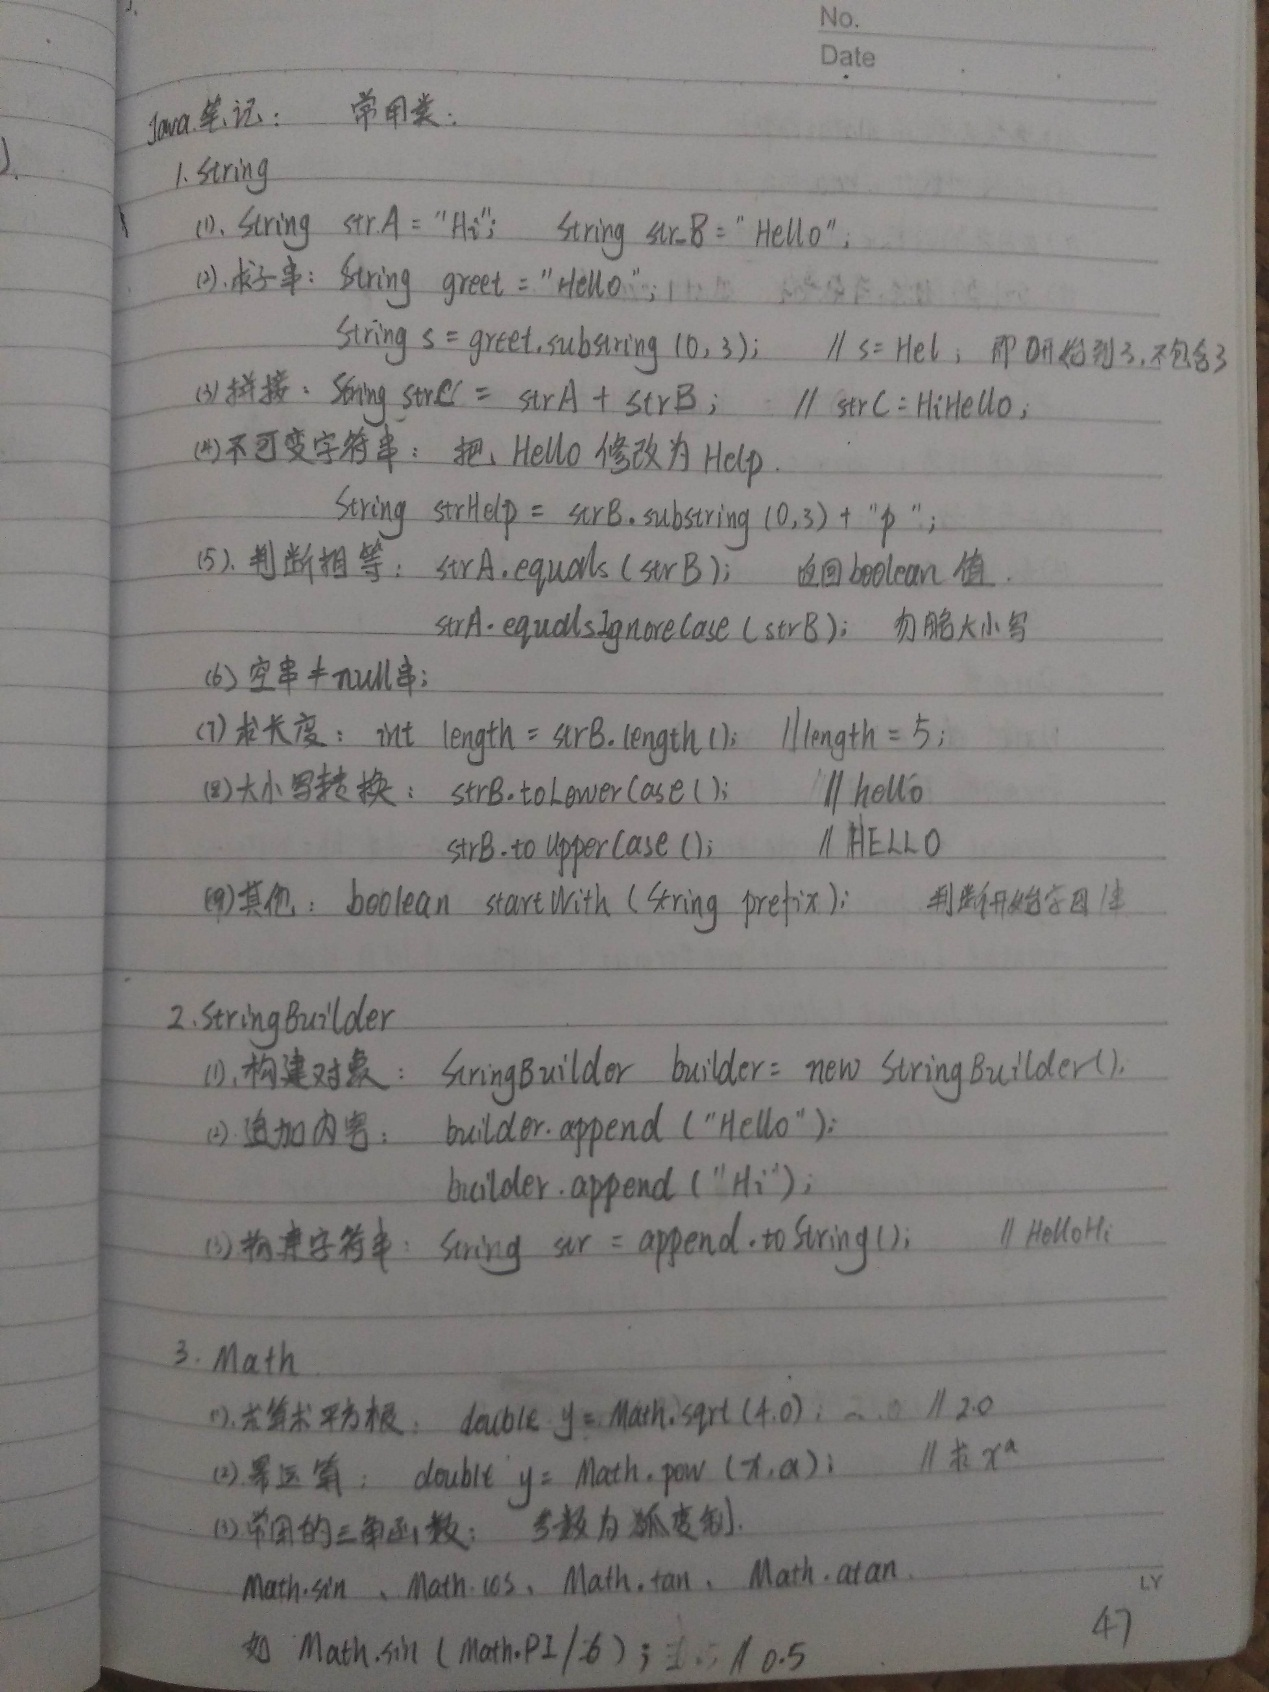 No.
Date
Java笔记: 常用类:
1. String
(1). String strA = "Hi"; String str_B = "Hello";
(2). 求子串: String greet = "Hello";
String s = greet.substring (0, 3); // s = Hel; 即0开始到3,不包含3
(3) 拼接: String strC = strA + strB; // strC = HiHello;
(4) 不可变字符串: 把 Hello 修改为 Help.
String strHelp = strB.substring (0,3) + "p";
(5). 判断相等: strA.equals (strB); 返回boolean 值.
strA.equalsIgnoreCase (strB); 勿略大小写
(6) 空串≠null串;
(7) 求长度: int length = strB.length(); //length = 5;
(8) 大小写转换: strB.toLowerCase (); // hello
strB.toUpperCase (); // HELLO
(9) 其他: boolean startWith (String prefix); 判断开始字母/串
2. StringBuilder
(1). 构建对象: StringBuilder builder = new StringBuilder().
(2). 追加内容: builder.append ("Hello");
builder.append ("Hi");
(3) 构建字符串: String str = append.toString(); // HelloHi
3. Math
(1). 求算术平方根: double y = Math.sqrt (4.0); // 2.0
(2) 幂运算: double y = Math.pow (x,a); // 求 xᵃ
(3) 常用的三角函数: 参数为弧度制.
Math.sin、Math.cos、Math.tan、Math.atan.
如 Math.sin (Math.PI/6); // 0.5
LY
47